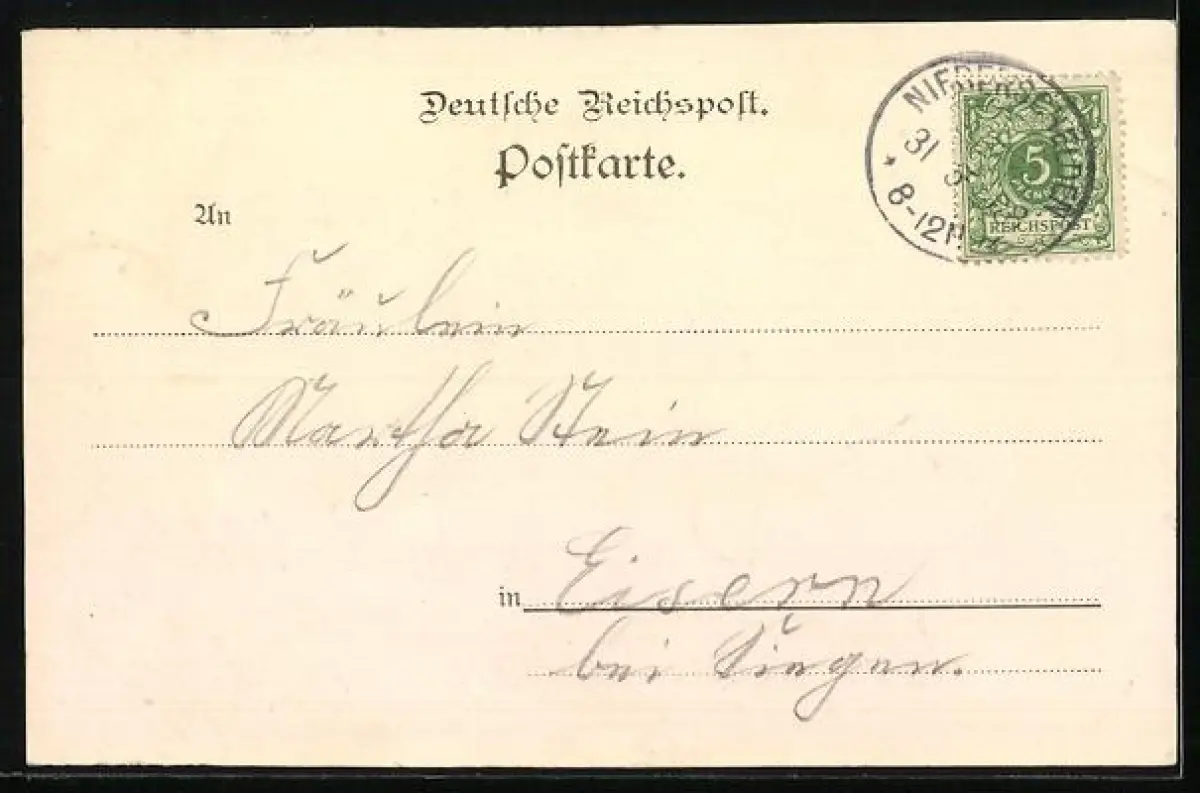 Deutsche Reichspost.
Postkarte.
NIEDERSCHELDEN
31
3
8-12N
5
REICHSPOST
An
Fräulein
Martha Stein
in Eisern
bei Siegen.